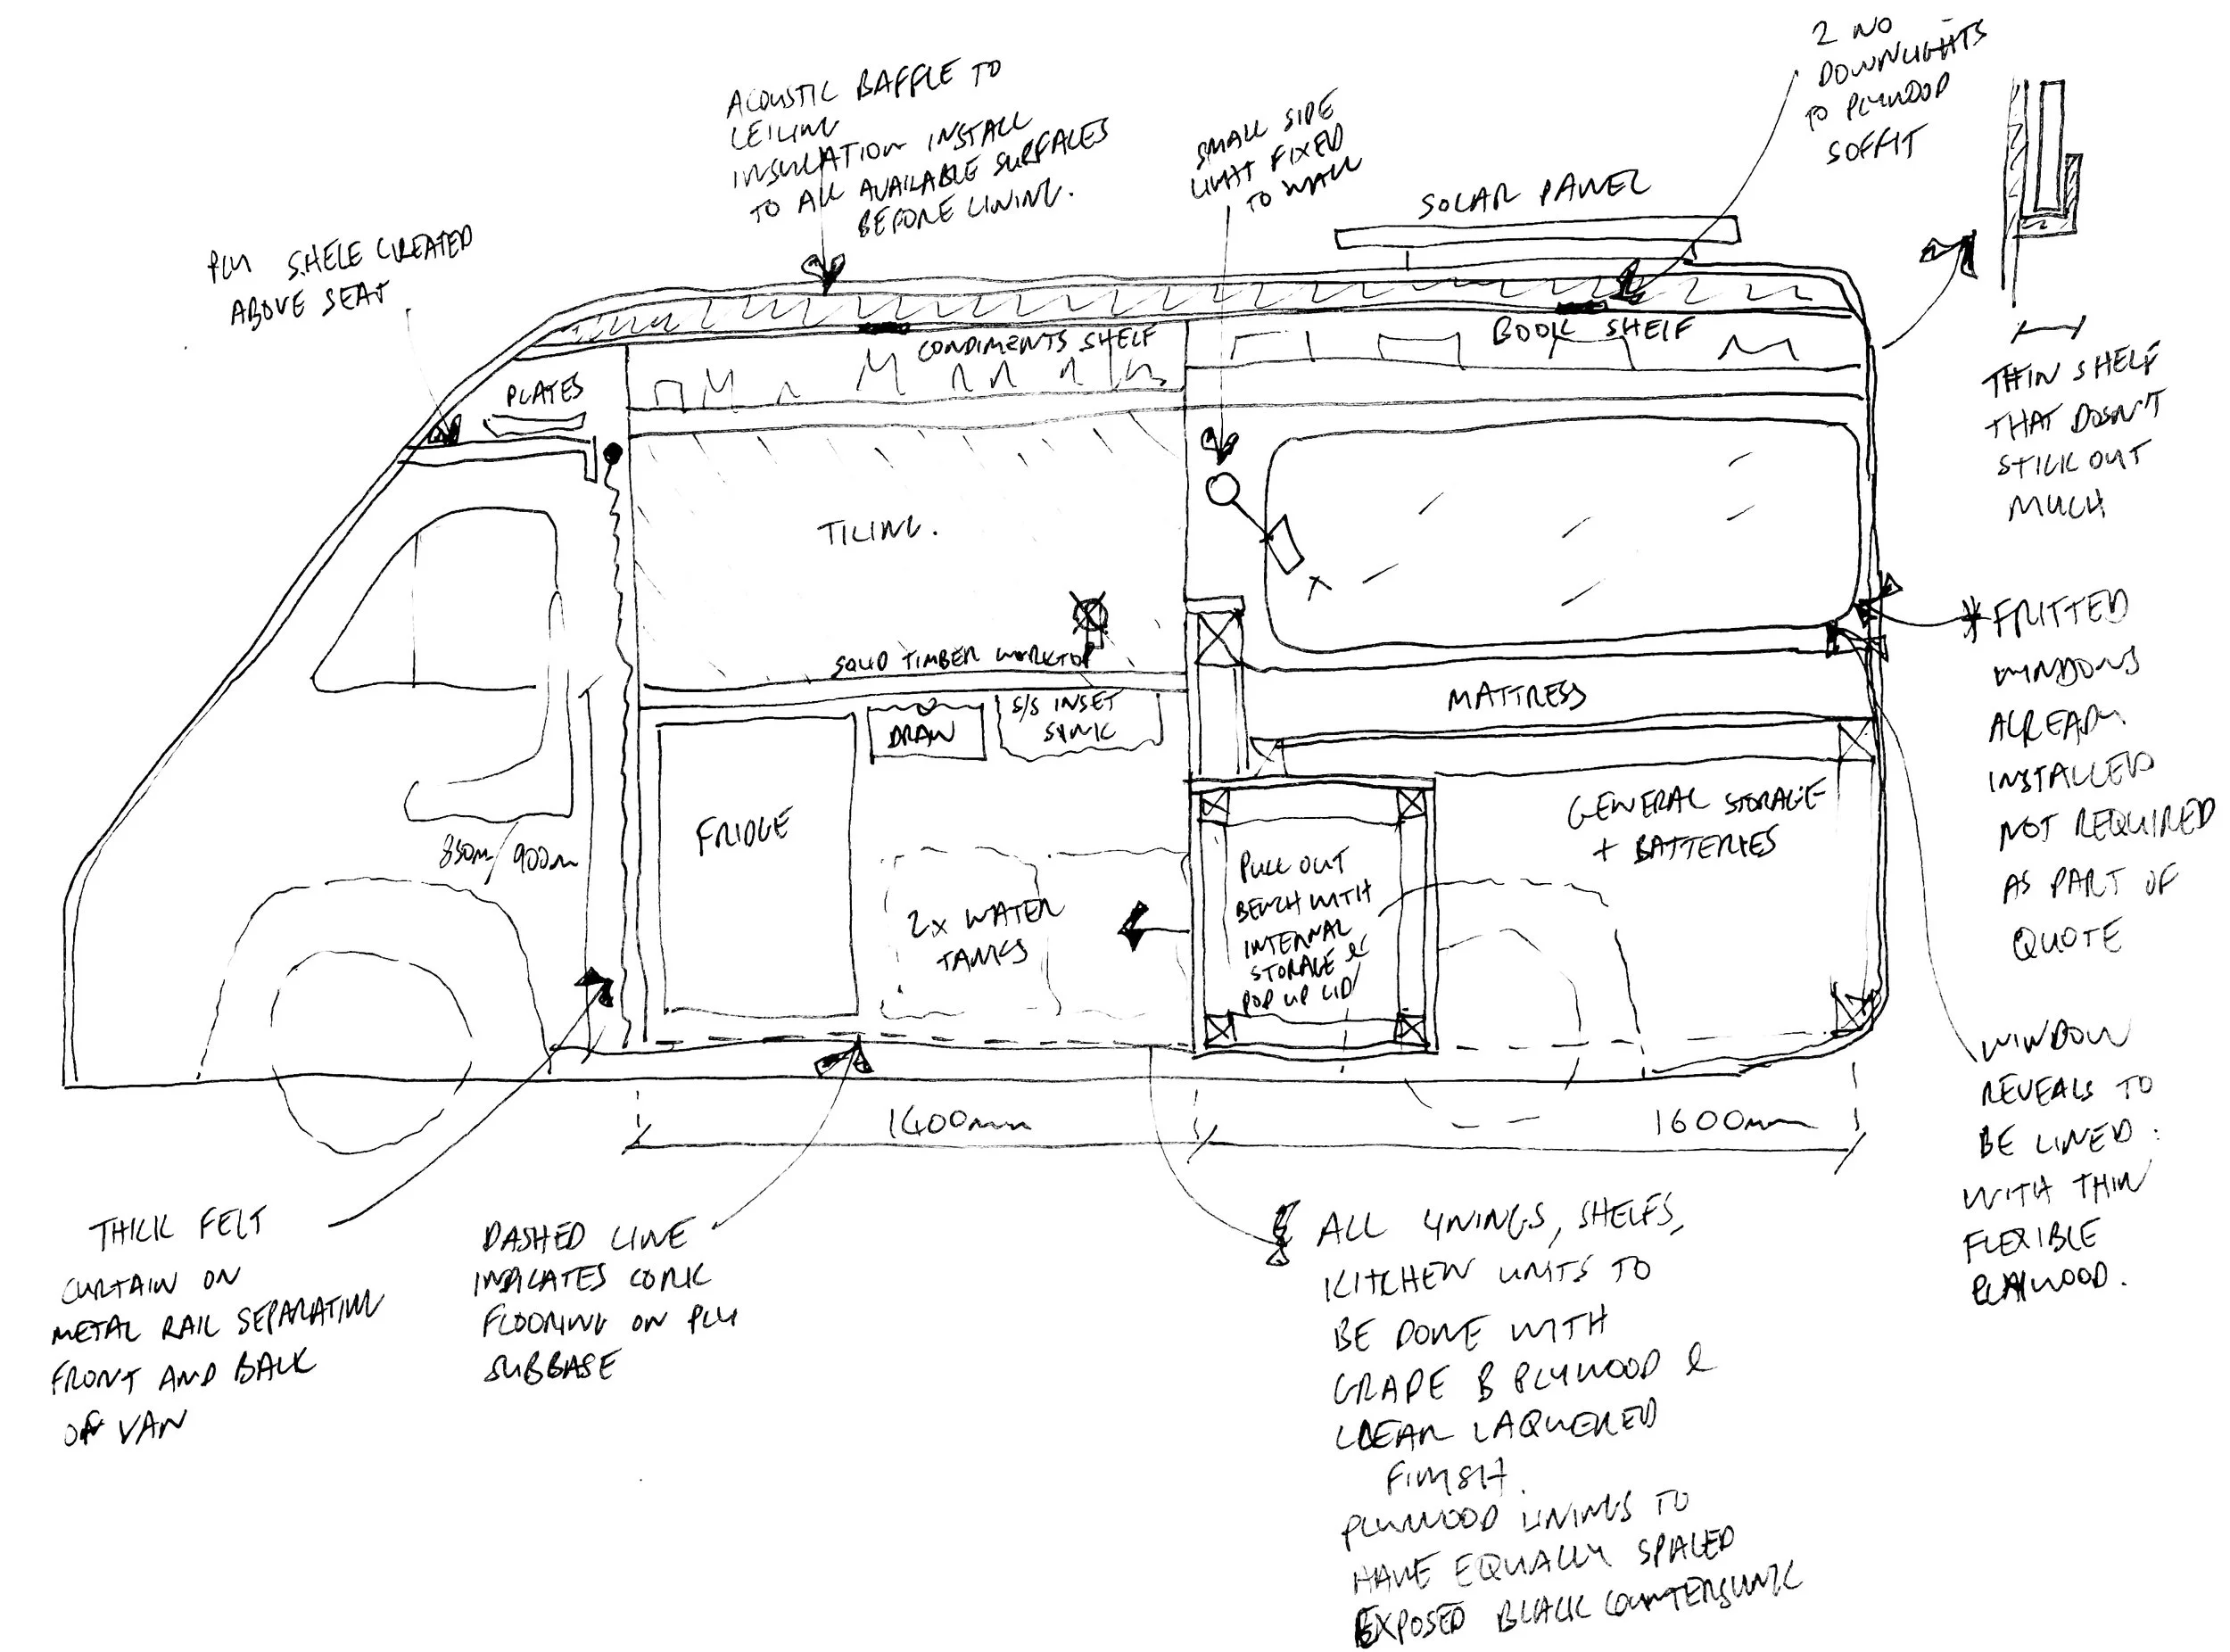 2 NO
DOWNLIGHTS
TO PLYWOOD
SOFFIT
ACOUSTIC BAFFLE TO
CEILING
INSULATION INSTALL
TO ALL AVAILABLE SURFACES
BEFORE LINING.
SMALL SIDE
LIGHT FIXED
TO WALL
SOLAR PANEL
PLY SHELF CREATED
ABOVE SEAT
CONDIMENTS SHELF
BOOK SHELF
PLATES
THIN SHELF
THAT DOSN'T
STICK OUT
MUCH
TILING.
X
SOLID TIMBER WORKTOP
* FRITTED
WINDOWS
ALREADY
INSTALLED
NOT REQUIRED
AS PART OF
QUOTE
MATTRESS
DRAW
S/S INSET
SINK
FRIDGE
GENERAL STORAGE
+ BATTERIES
850m/900m
PULL OUT
BENCH WITH
INTERNAL
STORAGE &
POP UP LID
2x WATER
TANKS
1400mm
1600mm
WINDOW
REVEALS TO
BE LINED
WITH THIN
FLEXIBLE
PLYWOOD.
THICK FELT
CURTAIN ON
METAL RAIL SEPARATING
FRONT AND BACK
OF VAN
DASHED LINE
INDICATES CORK
FLOORING ON PLY
SUBBASE
ALL LININGS, SHELFS,
KITCHEN UNITS TO
BE DONE WITH
GRADE B PLYWOOD &
CLEAR LAQUERED
FINISH.
PLYWOOD LININGS TO
HAVE EQUALLY SPACED
EXPOSED BLACK COUNTERSUNK